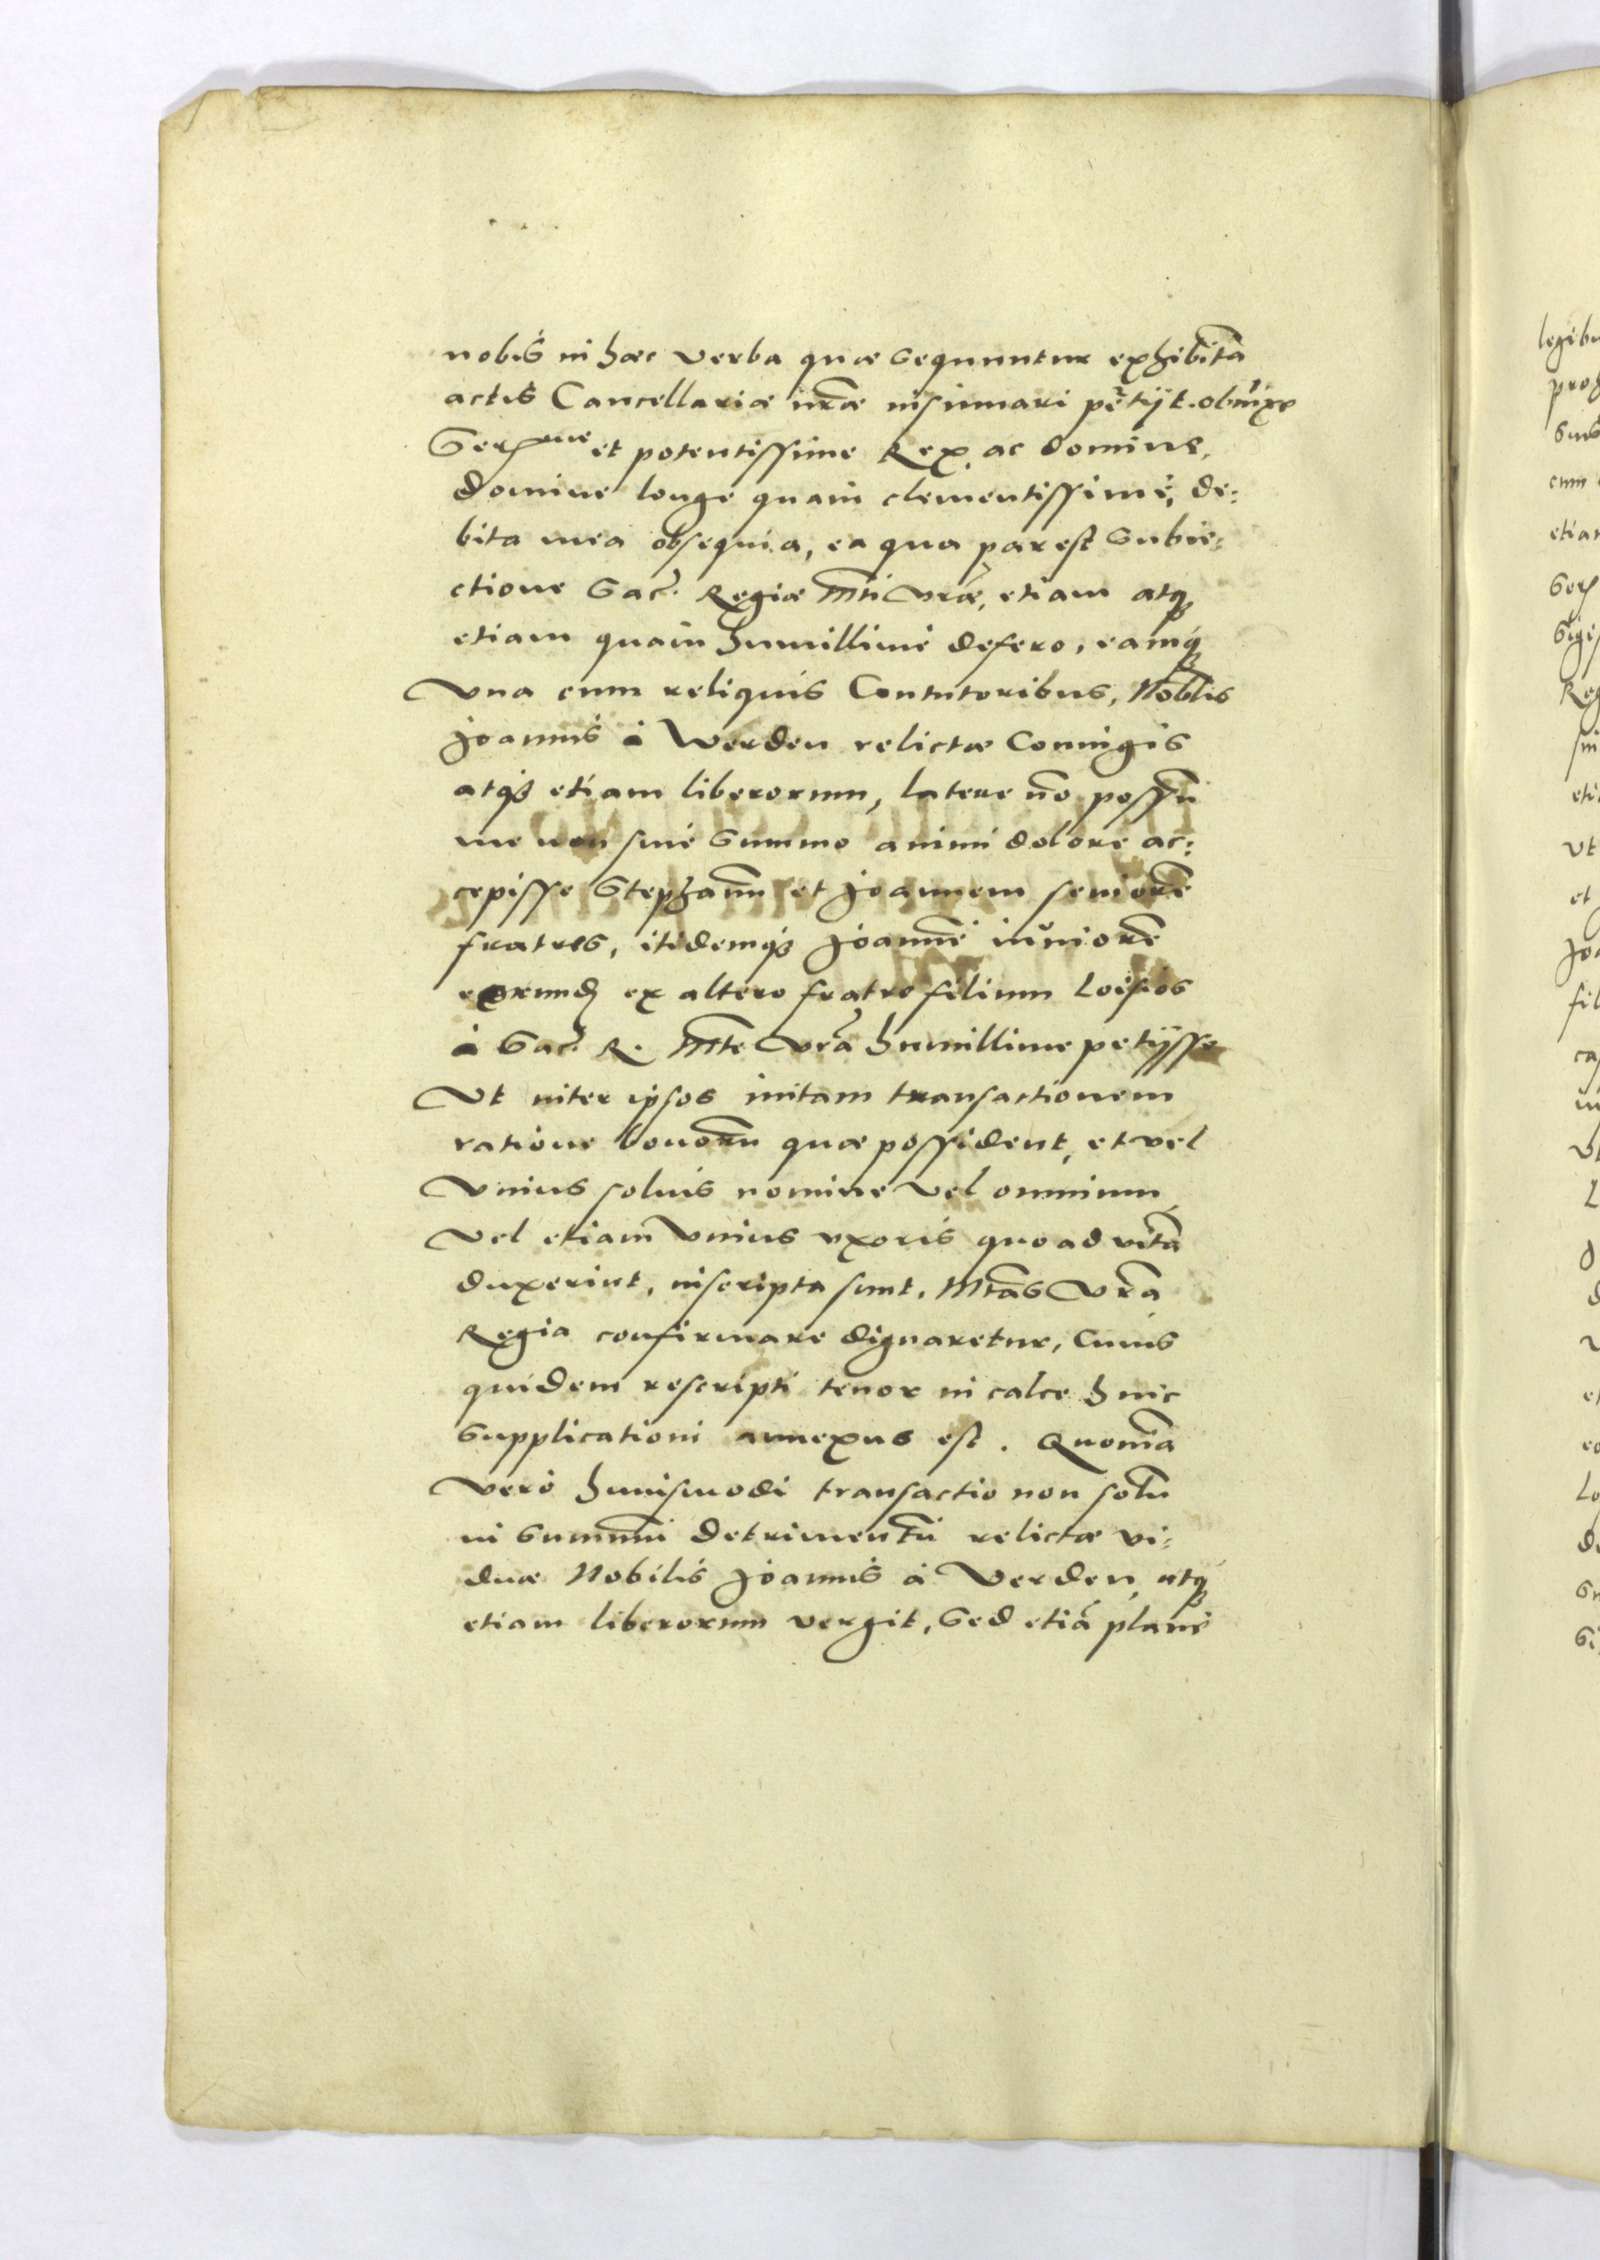 nobis in hæc verba quæ sequuntur exhibitã
actis Cancellariæ nr̃æ insinuari petijt. obnixe
Serme et potentissime Rex, ac domine,
domine longe quam clementissime, de:
bita mea obsequia, ea qua par est subie:
ctione Sac. Regiæ Mti Vræ, etiam atq
etiam quam humillime defero, eamq
Vna cum reliquis Contutoribus, Noblis
Joannis à Werden relictæ Coniugis
atq etiam liberorum, latere nõ possũ
me non sine summo animi dolore ac:
cepisse Stephanũ et Joannem seniorẽ
fratres, itidemq Joannẽ iuniorẽ
eorund ex altero fratre filium Loisios
à Sac. R. Mte Vrã humillime petijsse
Vt inter ipsos initam transactionem
ratione bonorũ quæ possident, et vel
Vnius solius nomine vel omnium,
Vel etiam Vnius vxoris quoad vitã
duxerint, inscripta sunt, Mtãs Vrã
Regia confirmare dignaretur, Cuius
quidem rescripti tenor in calce huic
Supplicationi annexus est. Quoniã
Vero huiusmodi transactio non solũ
in summũ detrimentũ relictæ vi:
duæ Nobilis Joannis à Verden, atq
etiam liberorum vergit, sed etiã planè
legibu
cum
etiam
Ser
Reg
Vt
et
Joa
fil